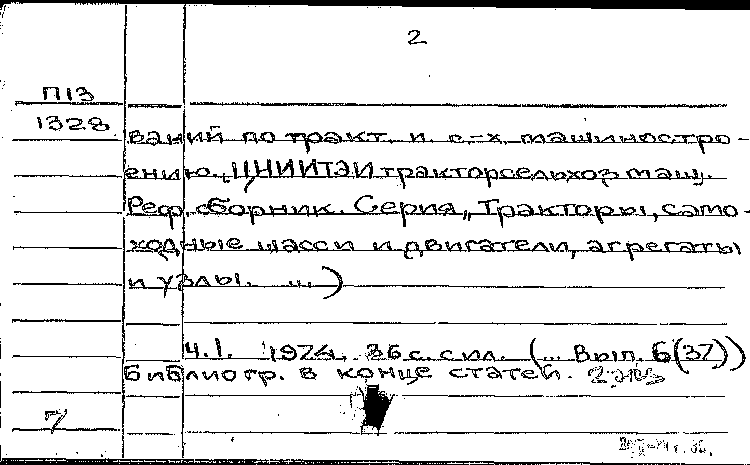 2
П13
1328
ваний по тракт. и с.-х. машиностро-
ению. „ЦНИИТЭИтракторсельхозмаш.
Реф. сборник. Серия „Тракторы, само-
ходные шасси и двигатели, агрегаты
и узлы. ...)
Ч.1. 1974. 36 с. с ил. (... Вып. 6(37))
Библиогр. в конце статей. 2 экз
7